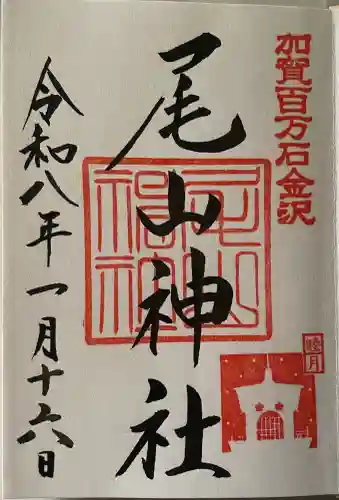 加賀百万石金沢
尾山神社
尾山神社
睦月
令和八年一月十六日